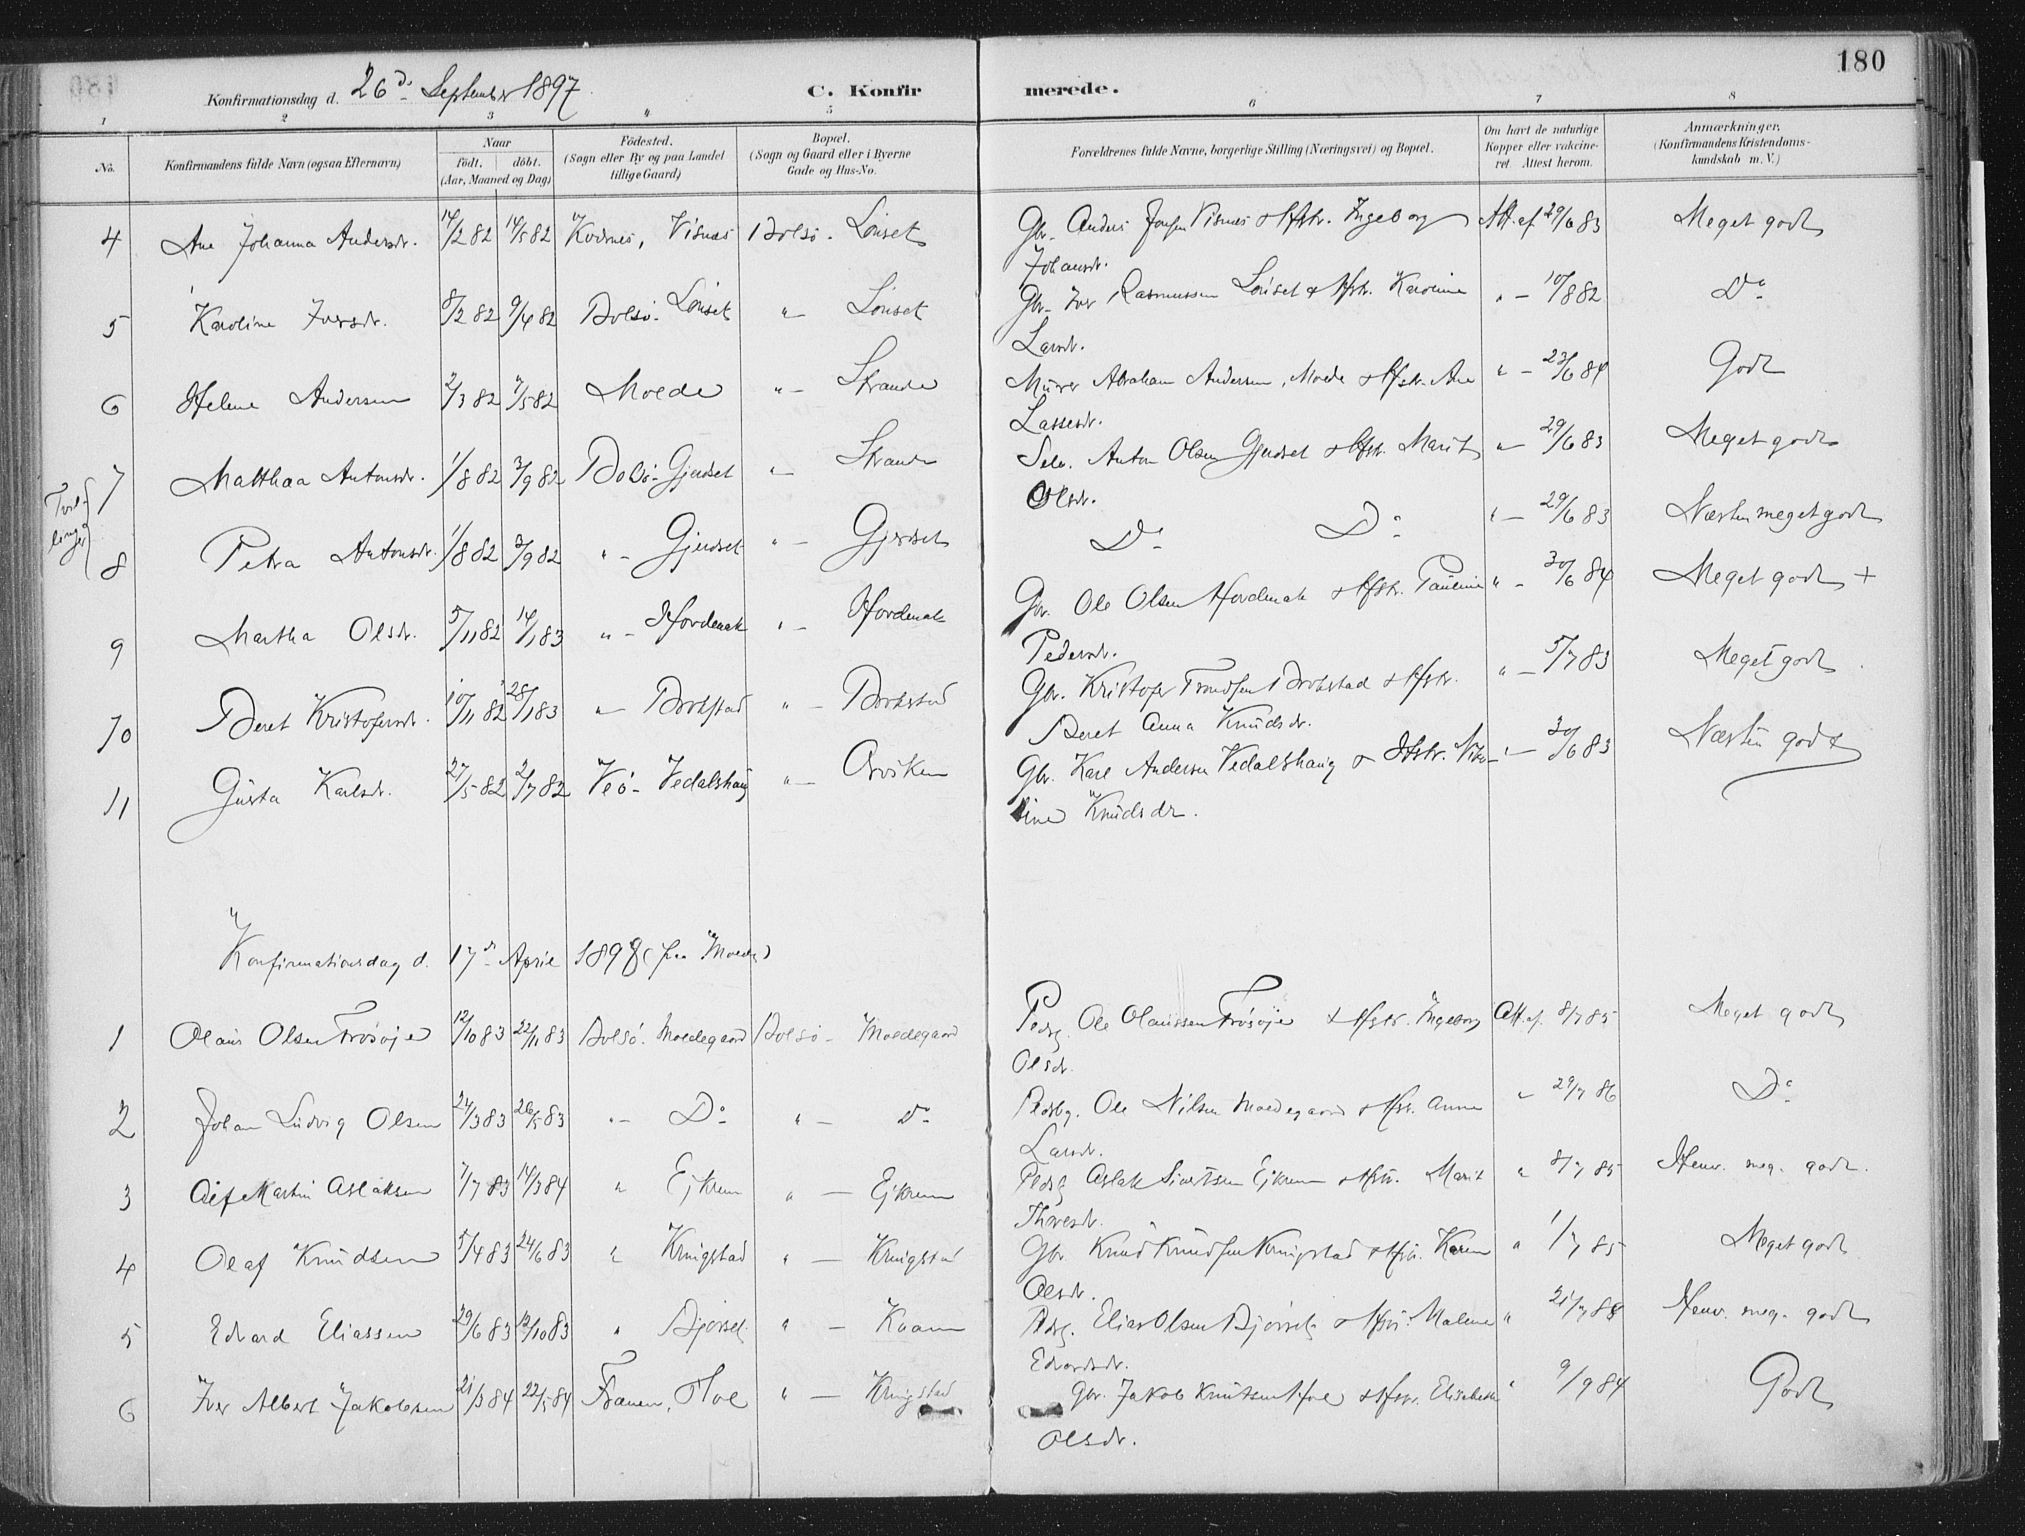 180
Konfirmationsdag d. 26d. September 1897. C. Konfirmerede.
1 2 3 4 5 6 7 8
No. Konfirmandens fulde Navn (ogsaa Efternavn) Naar födt. döbt. (Aar, Maaned og Dag) Födested. (Sogn eller By og paa Landet tillige Gaard) Bopæl. (Sogn og Gaard eller i Byerne Gade og Hus-No. Forældrenes fulde Navne, borgerlige Stilling (Næringsvei) og Bopæl. Om havt de naturlige Kopper eller vakcineret. Attest herom. Anmærkninger. (Konfirmandens Kristendomskundskab m. V.)
4 Ane Johanna Andersdr. 14/2 82 14/5 82 Kvernes, Visnes Bolsö - Lönset Gbr. Anders Jonsen Visnes & Hstr. Ingeborg Att. af 29/6 83 Meget godt
Johansdr.
5 Karoline Iversdr. 8/2 82 9/4 82 Bolsö - Lönset " - Lönset Gbr. Iver Rasmussen Lönset & Hstr. Karoline " - 10/8 82 Do
Larsdr.
6 Helene Andersen 2/3 82 7/5 82 Molde " - Strande Murer Abraham Andersen, Molde & Hstr. Ane " - 23/6 84 Godt
Lassesdr.
Tvillinger
7 Matthea Antonsdr. 1/8 82 3/9 82 Bolsö - Gjerdset " - Strande Selv. Anton Olsen Gjerdset & Hstr. Marit " - 29/6 83 Meget godt
Olsdr.
8 Petra Antonsdr. 1/8 82 3/9 82 " - Gjerdset " - Gjerdset Do Do " - 29/6 83 Næsten meget godt
9 Martha Olsdr. 5/11 82 14/1 83 " - Hordenak " - Hordenak Gbr. Ole Olsen Hordenak & Hstr. Pauline " - 30/6 84 Meget godt +
Pedersdr.
10 Beret Kristofersdr. 10/11 82 28/1 83 " - Brokstad " - Brokstad Gbr. Kristofer Trondsen Brokstad & Hstr. " - 5/7 83 Meget godt
Beret Anna Knudsdr.
11 Gusta Karlsdr. 27/5 82 2/7 82 Veö - Vedalshaug " - Orviken Gbr. Karl Andersen Vedalshaug & Hstr. Niko- " - 30/6 83 Næsten godt
line Knudsdr.
Konfirmationsdag d. 17d April 1898 (fra Molde)
1 Olaus Olsen Frösöje 12/10 83 22/11 83 Bolsö - Moldegaard Bolsö - Moldegaard Pldsg. Ole Olaussen Frösöje & Hstr. Ingeborg Att. af. 8/7 85 Meget godt
Olsdr.
2 Johan Ludvig Olsen 24/3 83 26/5 83 " - Do " - Do Pldsbg. Ole Nilsen Moldegaard & Hstr. Anne " 29/7 86 Do
Larsdr.
3 Alf Martin Aslaksen 7/7 83 14/3 84 " Ejkrem " - Ejkrem Pldsg. Aslak Sivertsen Ejkrem & Hstr. Marit " 8/7 85 Henv. meg. godt.
Thoresdr.
4 Olaf Knudsen 5/4 83 24/6 83 " Kringstad " - Kringstad Gbr. Knud Knudsen Kringstad & Hstr. Karen " 1/7 85 Meget godt
Olsdr.
5 Edvard Eliassen 29/6 83 12/10 83 " Bjørset " - Kvam Pldsg. Elias Olsen Bjørset & Hstr. Malene " 21/7 84 Henv. meg. godt
Edvardsdr.
6 Iver Albert Jakobsen 21/3 84 22/5 84 Frænen, Hol " - Kringstad Gbr. Jakob Knutsen Hol & Hstr. Elisabeth " 9/9 84 Godt
Olsdr.